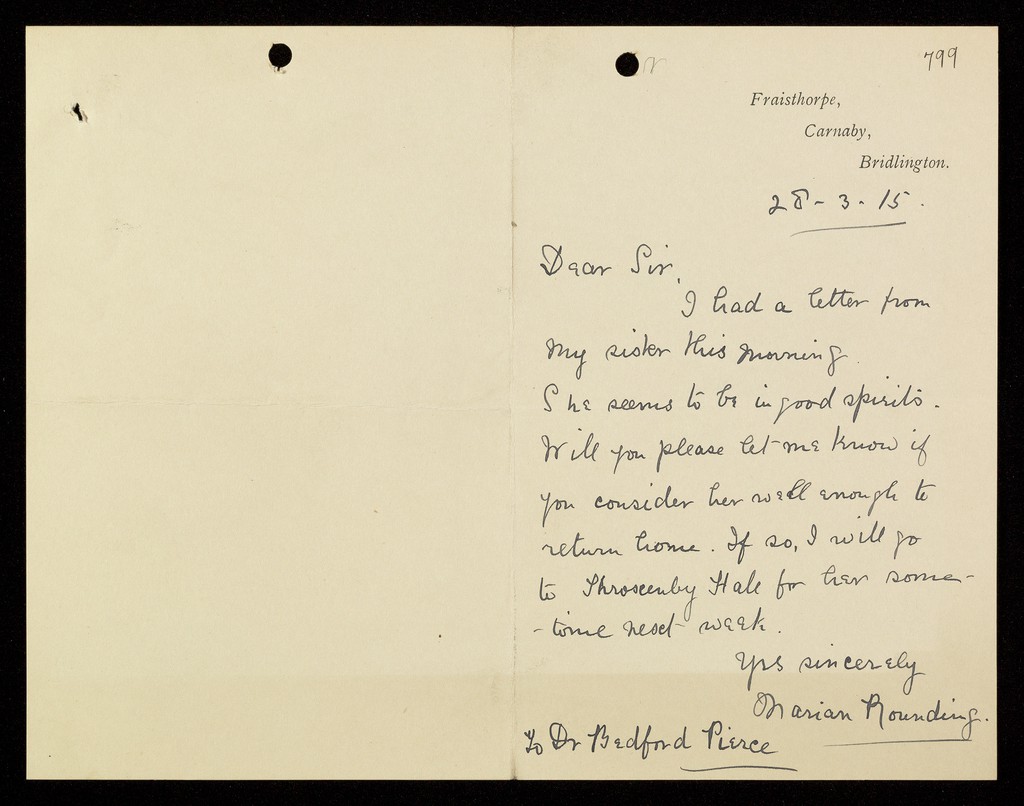 799
Fraisthorpe,
Carnaby,
Bridlington.
28-3-15.
Dear Sir,
I had a letter from
my sister this morning.
She seems to be in good spirits.
Will you please let me know if
you consider her well enough to
return home. If so, I will go
to Throxenby Hall for her some-
-time next week.
Yrs sincerely
Marian Rounding.
To Dr Bedford Pierce